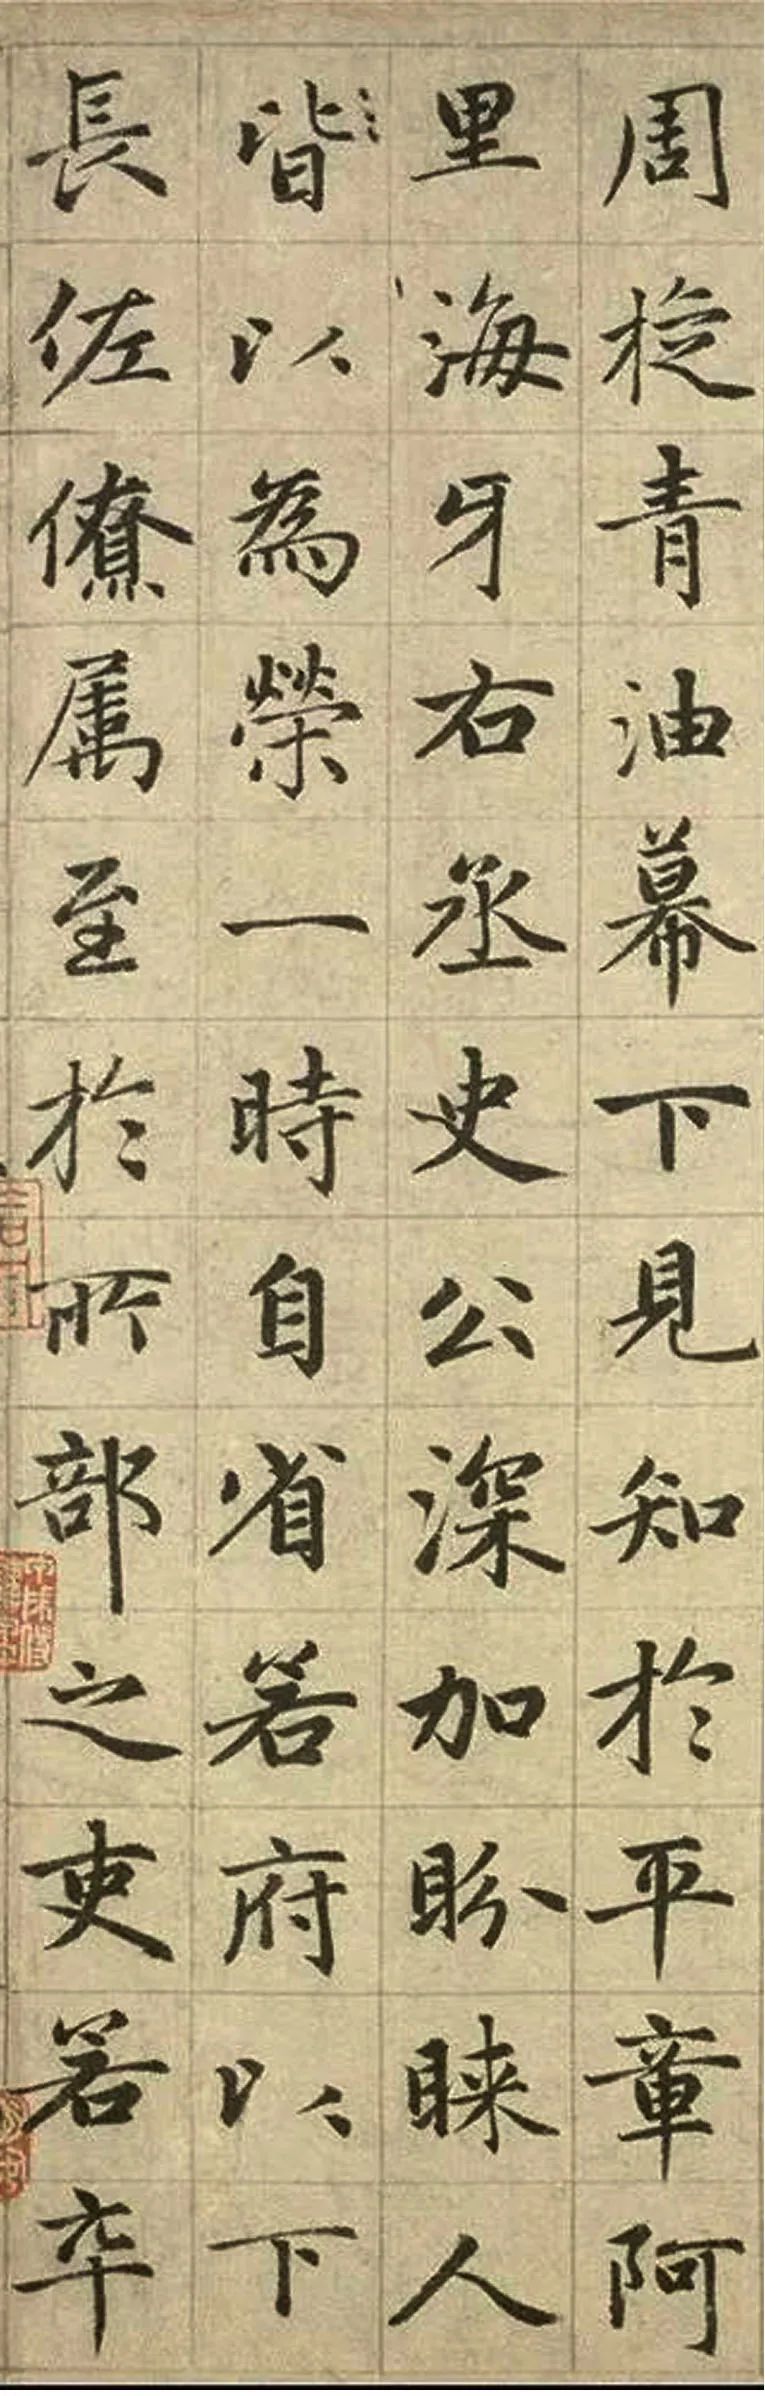 周旋青油幕下見知於平章阿
里海牙右丞史公深加盼睞人
皆以為榮一時自省若府以下
長佐僚属至於所部之吏若卒